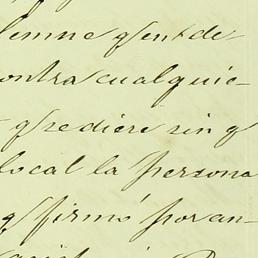 lemne q^e sent de
ontra cualquie-
q^e se diere sin q^e
local la persona
q^e firmó por an-